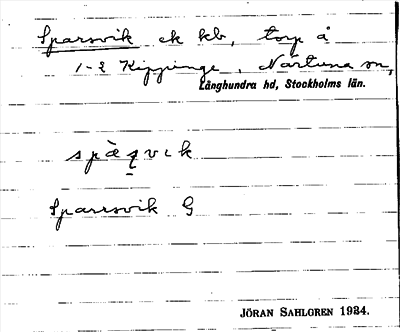 Sparsvik ek kb, torp å
1-2 Kippinge, Närtuna sn,
Långhundra hd, Stockholms län.
Sparrsvik G
JÖRAN SAHLGREN 1924.